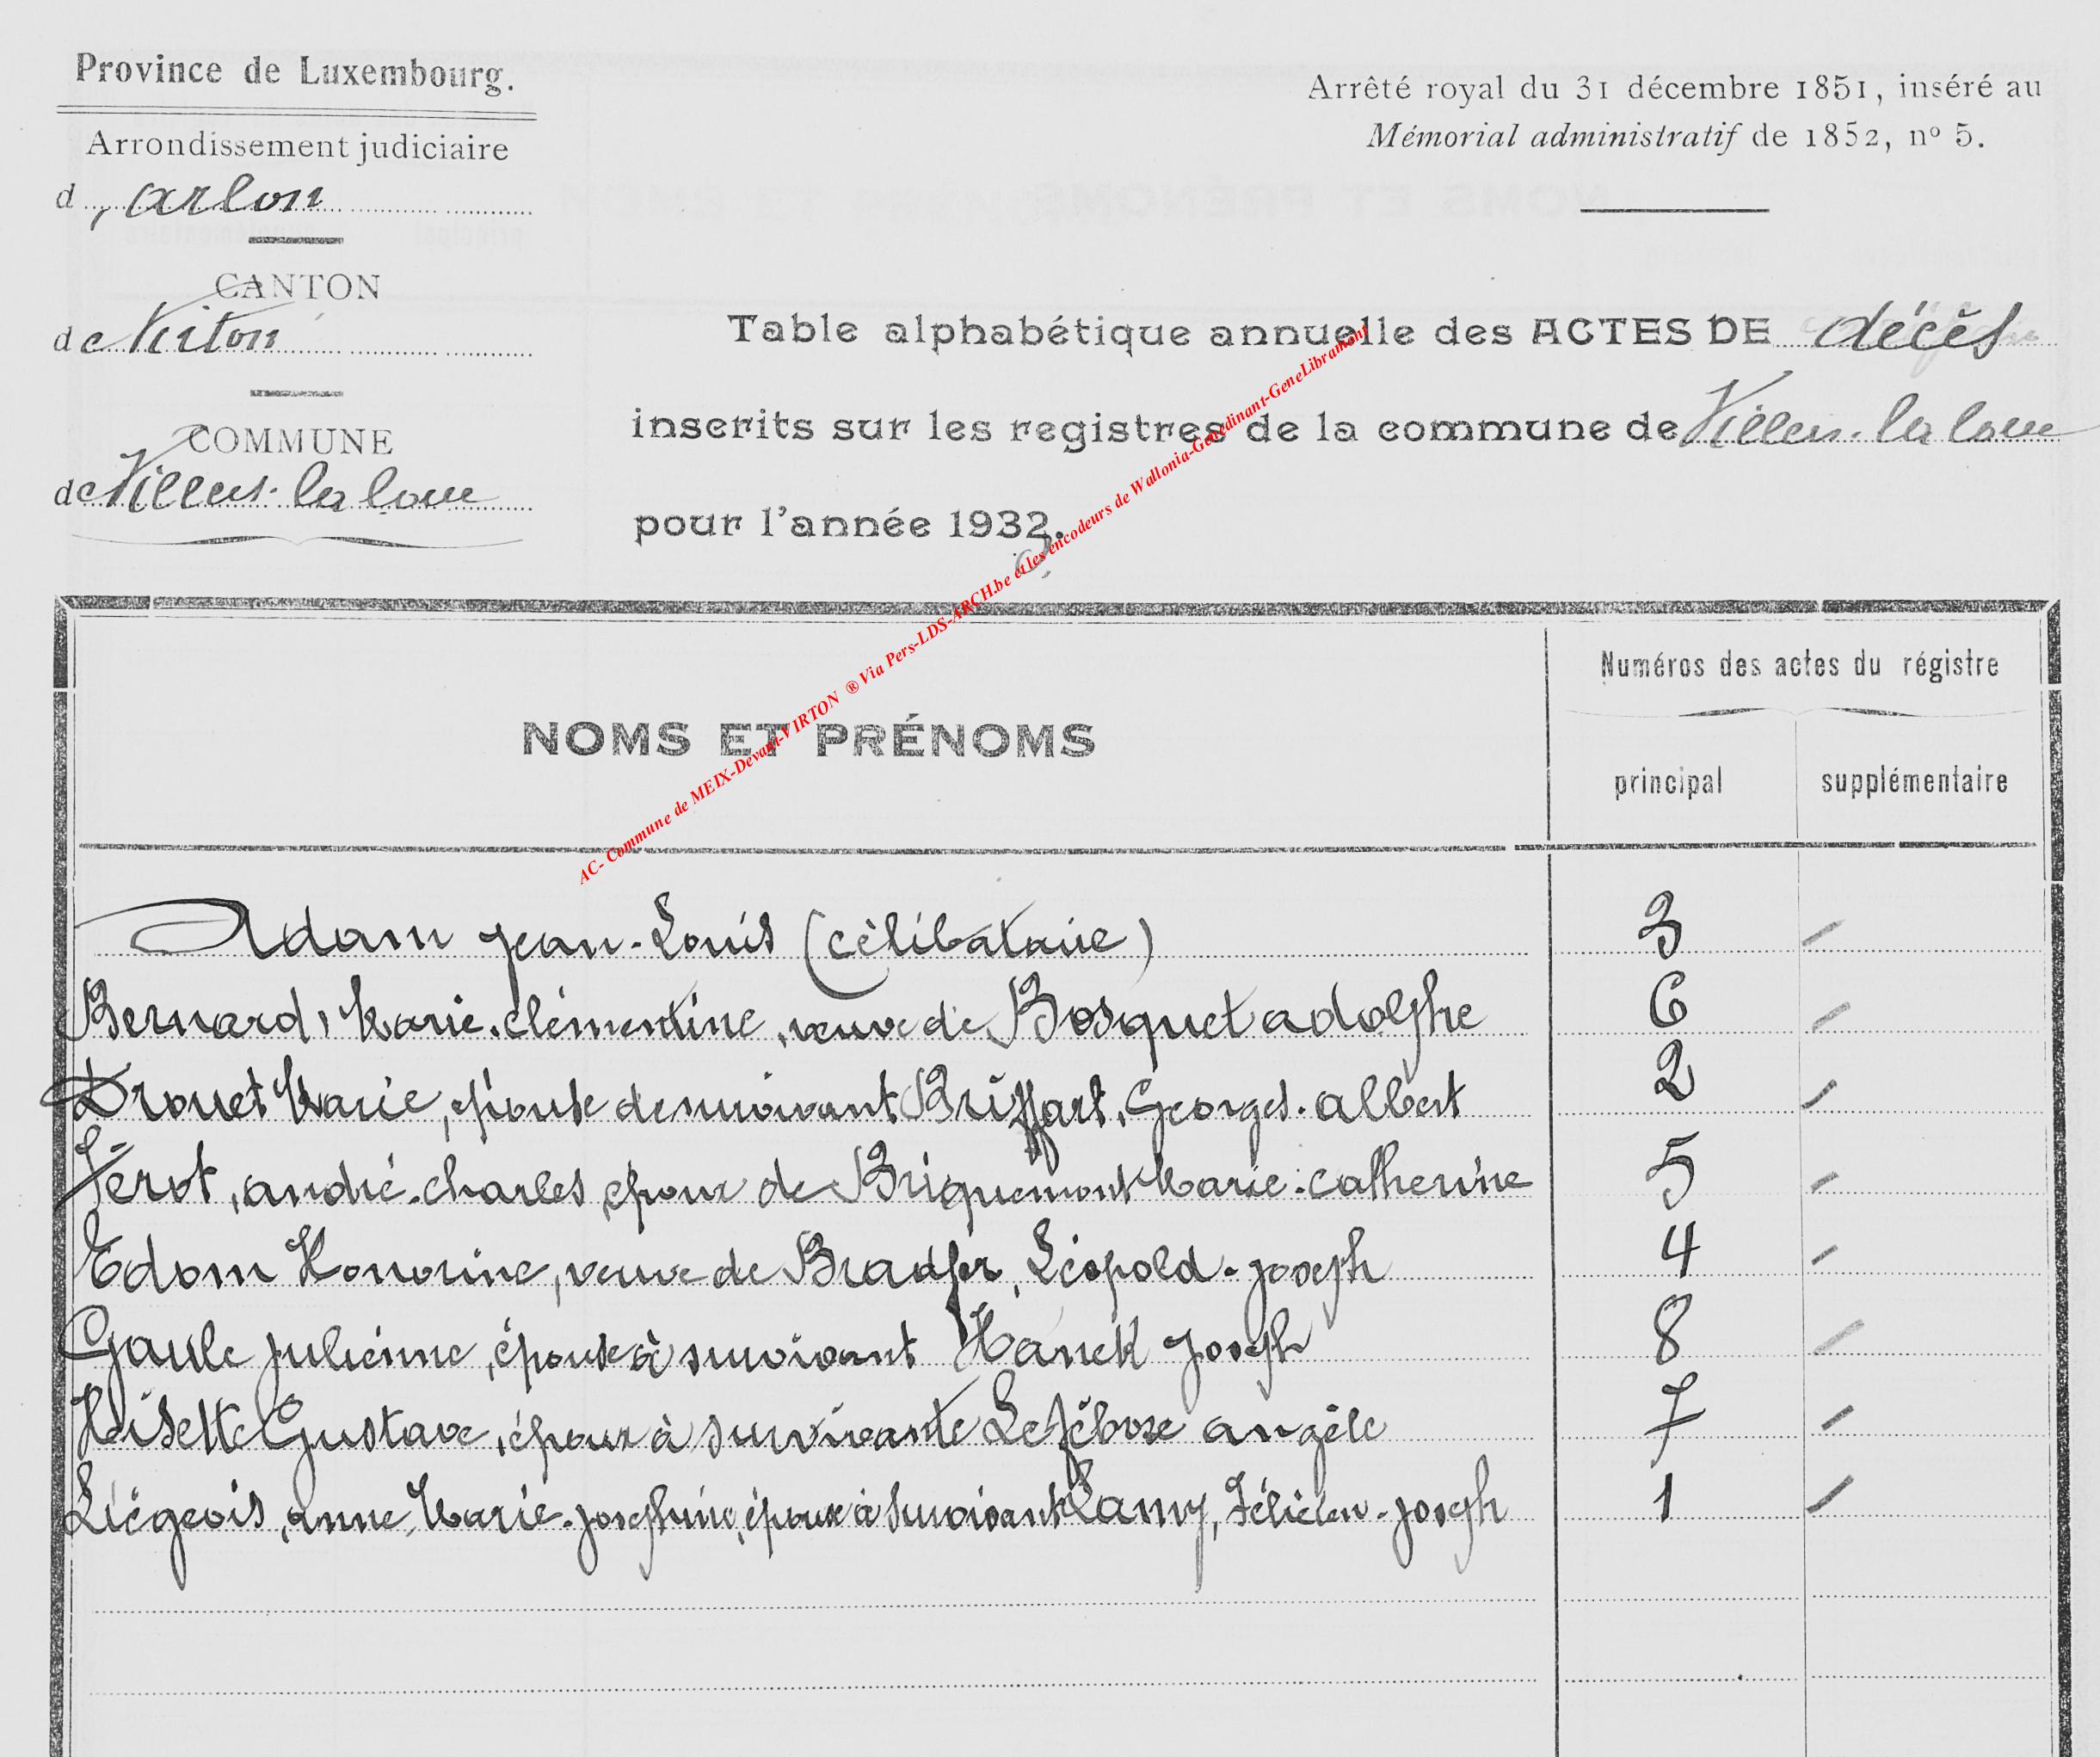 Province de Luxembourg.
Arrondissement judiciaire
d'Arlon
CANTON
de Virton
COMMUNE
de Villers-la loue
Arrêté royal du 31 décembre 1851, inséré au
Mémorial administratif de 1852, nº 5.
Table alphabétique annuelle des ACTES DE décès
inscrits sur les registres de la commune de Villers-la loue
pour l'année 1932.
AC- Commune de MEIX-Devant-VIRTON ® Via Pers-LDS-ARCH.be et les encodeurs de Wallonia-Genedinant-GeneLibramont
NOMS ET PRÉNOMS
Numéros des actes du régistre
principal supplémentaire
Adam Jean-Louis (célibataire) 3 -
Bernard, Marie-Clémentine, veuve de Bosquet adolphe 6 -
Drouet Marie, épouse de survivant Briffart, Georges-albert 2 -
Férot, andré-charles, époux de Briquemont Marie-catherine 5 -
Edom Honorine, veuve de Bradfer, Léopold-joseph 4 -
Gaule julienne, épouse à survivant Hanck Joseph 8 -
Hisette Gustave, époux à survivante Lefébvre angèle 7 -
Liégeois, anne, Marie-josephine, épouse à survivant Lamy, Félicien-joseph 1 -